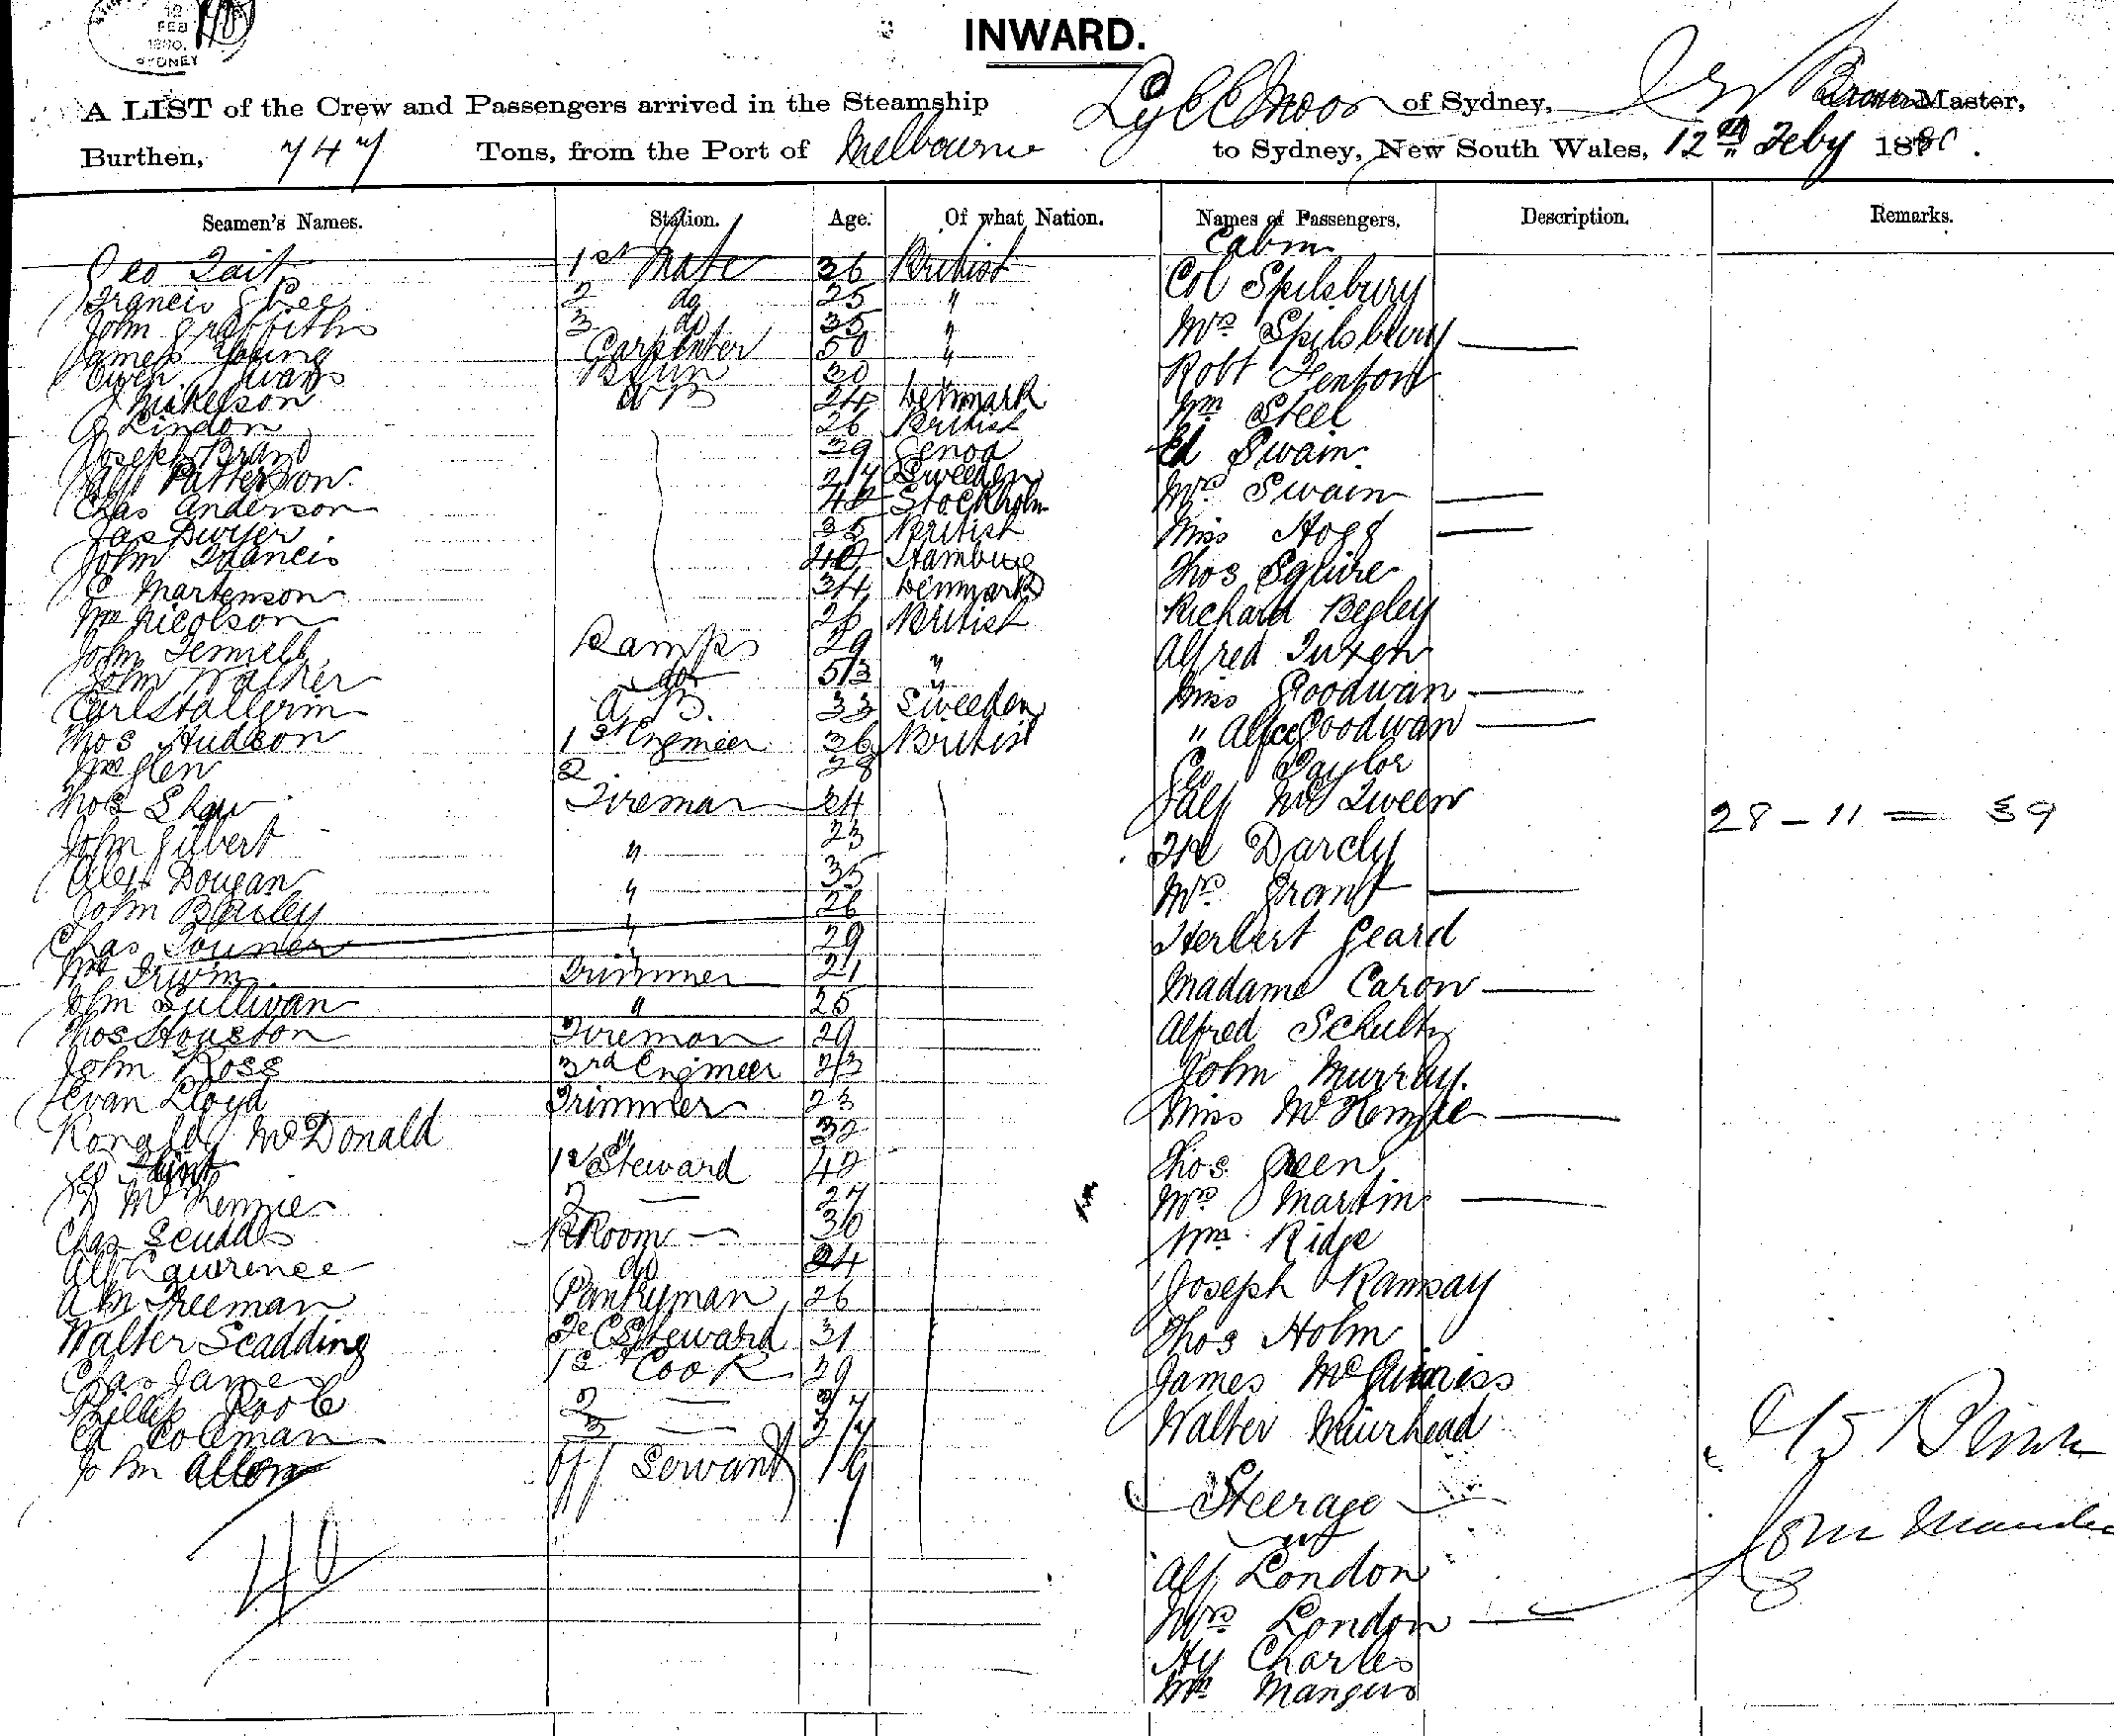 12
FEB
1880.
SYDNEY
INWARD.
A LIST of the Crew and Passengers arrived in the Steamship of Sydney, Brown Master,
Burthen, 747 Tons, from the Port of Melbourne to Sydney, New South Wales, 12th Feby 1880.
Seamen's Names. Station. Age. Of what Nation. Names of Passengers. Description. Remarks.
Cabin
Geo Tait 1st Mate 36 British Col Spilsbury
Francis 2 do 25 " Mrs Spilsbury
John Griffiths 3 do 35 "
James Young Carpenter 50 " Robt Fenton
Owen 30
Nickelson AB 24 Denmark Wm Steel
Lindon 26 British
Joseph Brand 39 Genoa Ed Swain
Alf Patterson 27 Sweeden
Chas Anderson 42 Stockholm Mrs Swain
Jas Dwyer 35 British Miss Hogg
John Francis 40 Hamburg Thos Squire
C Martenson 34 Denmark
Wm Nicolson 26 British Richard Begley
John Lamps 29 Alfred Tuxen
John Walker do 53 " Miss Goodwan
Carl A B. 33 Sweeden
Thos Hudson 1st Engineer 36 British " Alice Goodwan
Wm Glen 2 28 Geo Taylor
Thos Shaw Fireman 34 Alf McQueen 28 - 11 = 39
John Gilbert " 23 Darcly
Alex Dougan " 35 Mrs Grant
John Bailey " 26
Chas " 29 Herbert Geard
Wm Irwin Trimmer 21 Madame Caron
John Sullivan " 25
Thos Houston Fireman 29 Alfred Schultz
John Ross 3rd Engineer 23 John Murray
Evan Lloyd Trimmer 23 Miss
Ronald McDonald " 32
Geo 1st Steward 42 Thos Green
McKenzie 2 — 27 Mrs Martin
Chas 30 Wm Ridge
Alf Lawrence do 24 Joseph Ramsay
Freeman Pantryman 26
Walter Scadding Steward 31 Thos Holm
Chas James 1st Cook 29 James McGuiness
Phillip Poole 2 — 37
Ed Coleman 3 — 37 Walter Muirhead
John Allen Off Servant 19
Steerage
40
Alf London
Mrs London
Hy Charles
Mangus